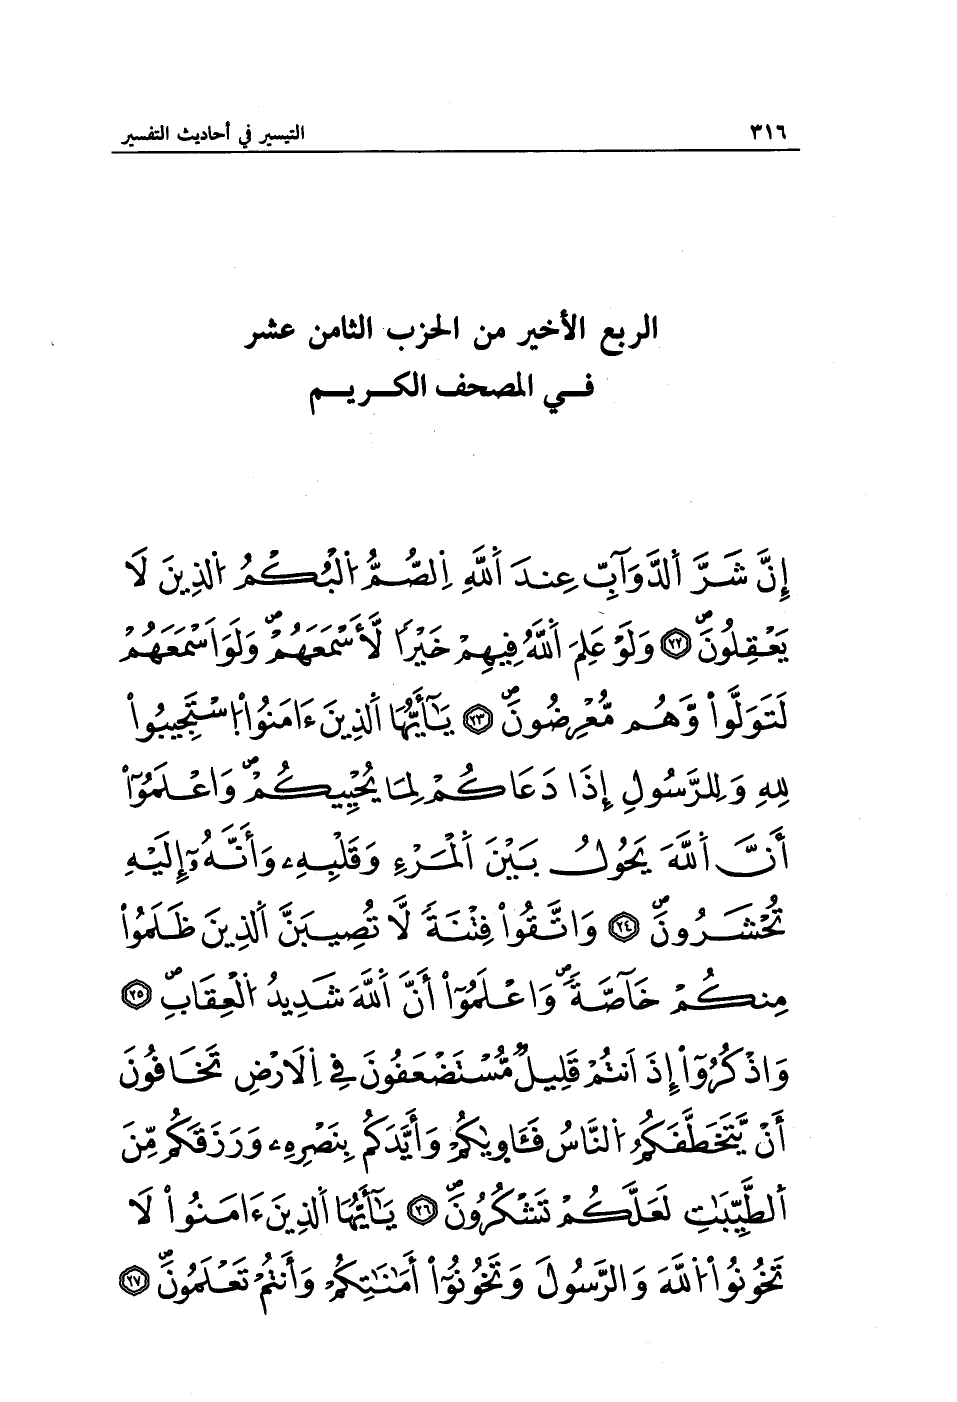 ٣١٦ التيسير في أحاديث التفسير
الربع الأخير من الحزب الثامن عشر
فـي المصحف الكـريـم
إِنَّ شَرَّ اَ۬لدَّوَآبِّ عِندَ اَ۬للَّهِ اِ۬لصُّمُّ اُ۬لْبُكْمُ اُ۬لذِينَ لَا
يَعْقِلُونَۖ ٢٢ وَلَوْ عَلِمَ اَ۬للَّهُ فِيهِمْ خَيْراٗ لَّأَسْمَعَهُمْۖ وَلَوَ اَسْمَعَهُمْ
لَتَوَلَّواْ وَّهُم مُّعْرِضُونَۖ ٢٣ يَٰٓأَيُّهَا اَ۬لذِينَ ءَامَنُواْ اُ۪سْتَجِيبُواْ
لِلهِ وَلِلرَّسُولِ إِذَا دَعَاكُمْ لِمَا يُحْيِيكُمْۖ وَاعْلَمُوٓاْ
أَنَّ اَ۬للَّهَ يَحُولُ بَيْنَ اَ۬لْمَرْءِ وَقَلْبِهِۦ وَأَنَّهُۥٓ إِلَيْهِ
تُحْشَرُونَۖ ٢٤ وَاتَّقُواْ فِتْنَةٗ لَّا تُصِيبَنَّ اَ۬لذِينَ ظَلَمُواْ
مِنكُمْ خَآصَّةٗۖ وَاعْلَمُوٓاْ أَنَّ اَ۬للَّهَ شَدِيدُ اُ۬لْعِقَابِۖ ٢٥
وَاذْكُرُوٓاْ إِذَ اَنتُمْ قَلِيلٞ مُّسْتَضْعَفُونَ فِي اِ۬لَارْضِ تَخَافُونَ
أَنْ يَّتَخَطَّفَكُمُ اُ۬لنَّاسُ فَـَٔاو۪يٰكُمْ وَأَيَّدَكُم بِنَصْرِهِۦ وَرَزَقَكُم مِّنَ
اَ۬لطَّيِّبَٰتِ لَعَلَّكُمْ تَشْكُرُونَۖ ٢٦ يَٰٓأَيُّهَا اَ۬لذِينَ ءَامَنُواْ لَا
تَخُونُواْ اُ۬للَّهَ وَالرَّسُولَ وَتَخُونُوٓاْ أَمَٰنَٰتِكُمْ وَأَنتُمْ تَعْلَمُونَۖ ٢٧